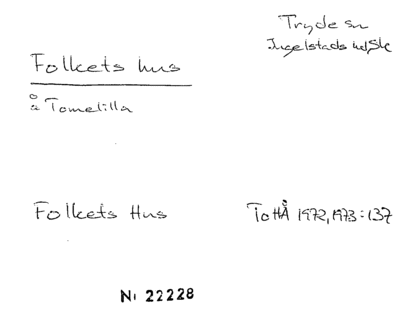 Tryde sn
Ingelstads hd, Sk
Folkets hus
å Tomelilla
Folkets Hus
ToHÅ 1972, 1973:137
Nr 22228